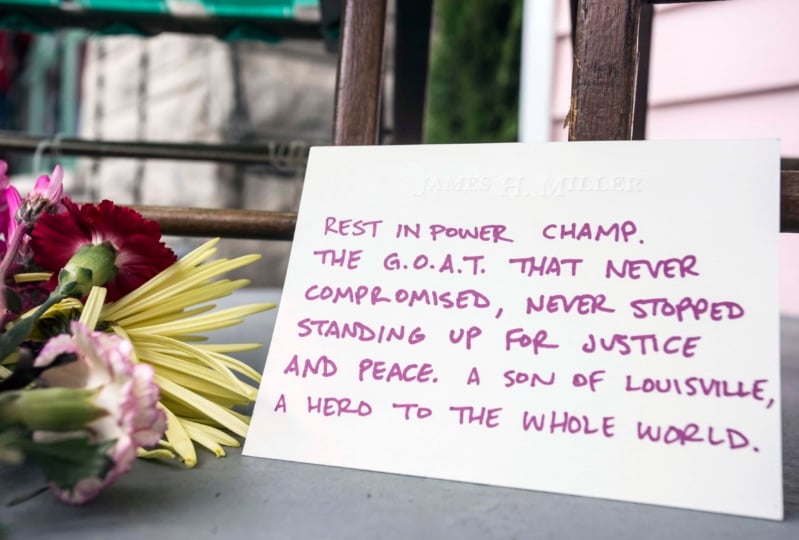 JAMES H. MILLER
REST IN POWER CHAMP.
THE G.O.A.T. THAT NEVER
COMPROMISED, NEVER STOPPED
STANDING UP FOR JUSTICE
AND PEACE. A SON OF LOUISVILLE,
A HERO TO THE WHOLE WORLD.